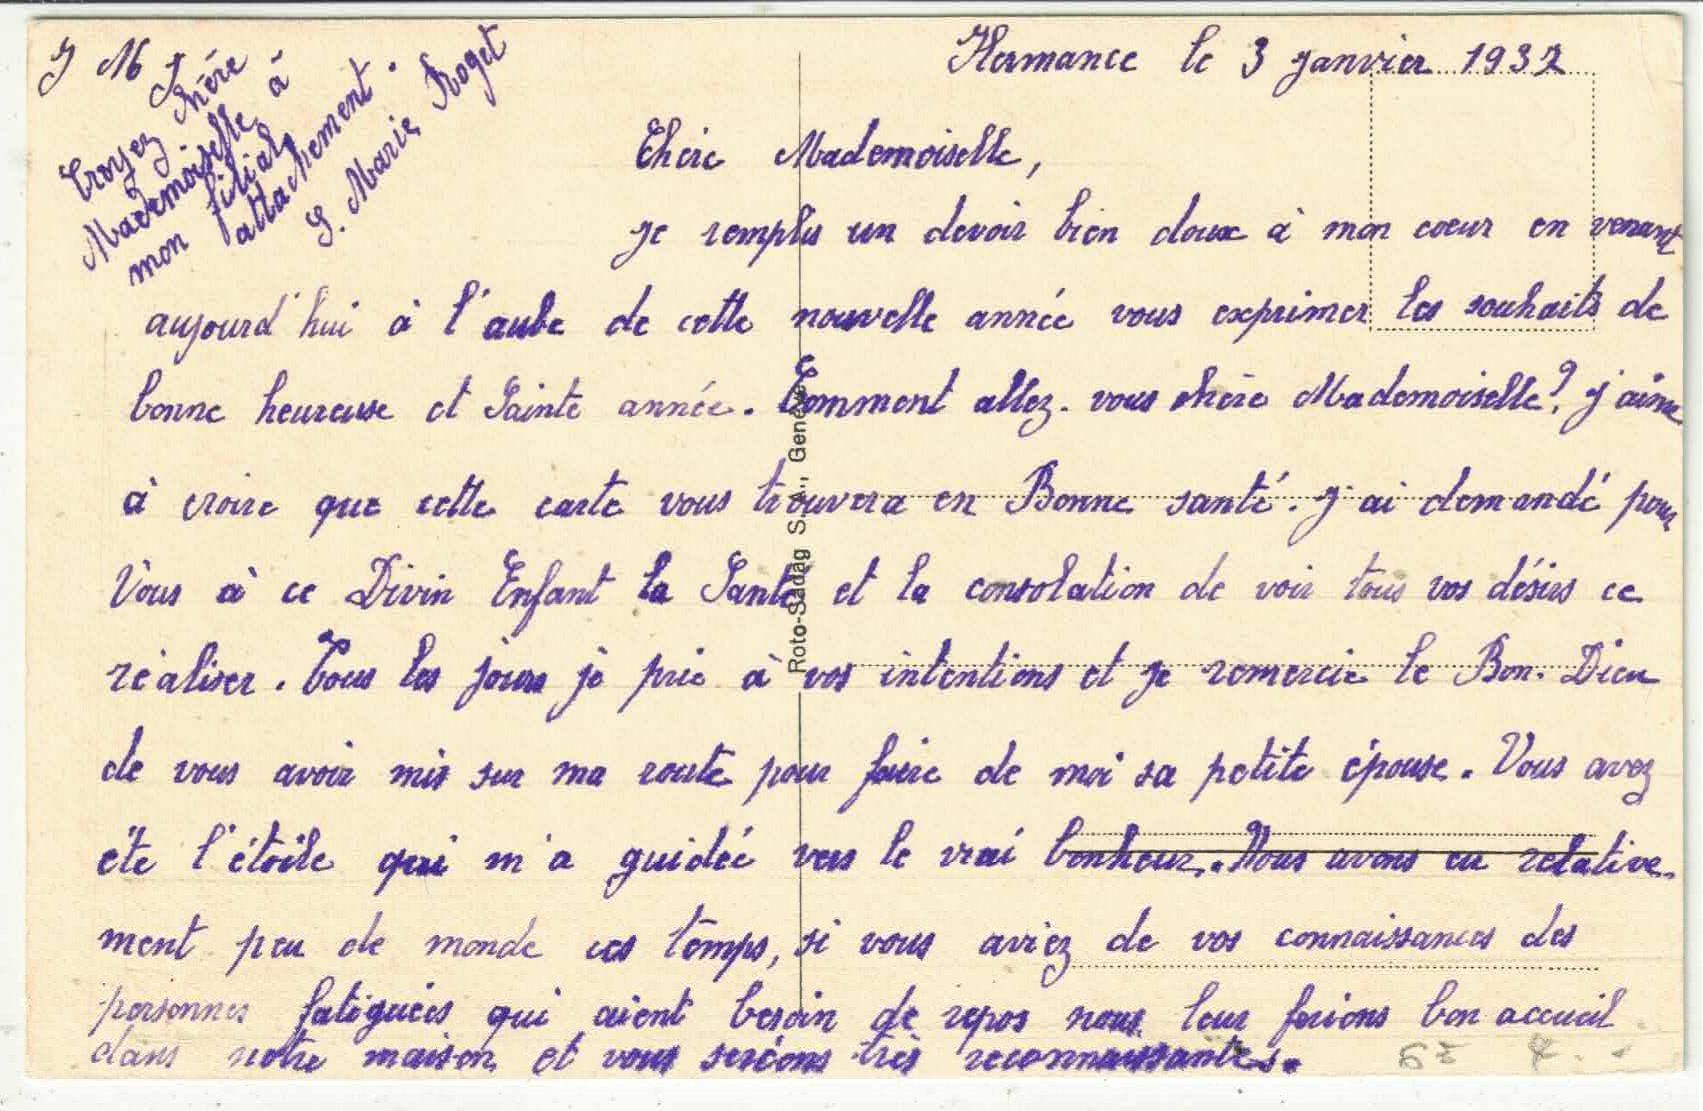 J M J
Hermance le 3 janvier 1932
Chère Mademoiselle,
je remplis un devoir bien doux à mon coeur en venant
aujourd'hui à l'aube de cette nouvelle année vous exprimer les souhaits de
bonne heureuse et Sainte année. Comment allez-vous chère Mademoiselle? j'aime
à croire que cette carte vous trouvera en Bonne santé. j'ai demandé pour
Vous à ce Divin Enfant la Santé et la consolation de voir tous vos désirs ce
réaliser. Tous les jours je prie à vos intentions et je remercie le Bon-Dieu
de vous avoir mis sur ma route pour faire de moi sa petite épouse. Vous avez
été l'étoile qui m'a guidée vers le vrai bonheur. Nous avons eu relative-
ment peu de monde ces temps, si vous aviez de vos connaissances des
personnes fatiguées qui aient besoin de repos nous leur ferions bon accueil
dans notre maison et vous serions très reconnaissantes.
Croyez chère
Mademoiselle, à
mon filial
attachement.
S. Marie Roget
Roto-Sadag S.A., Genève